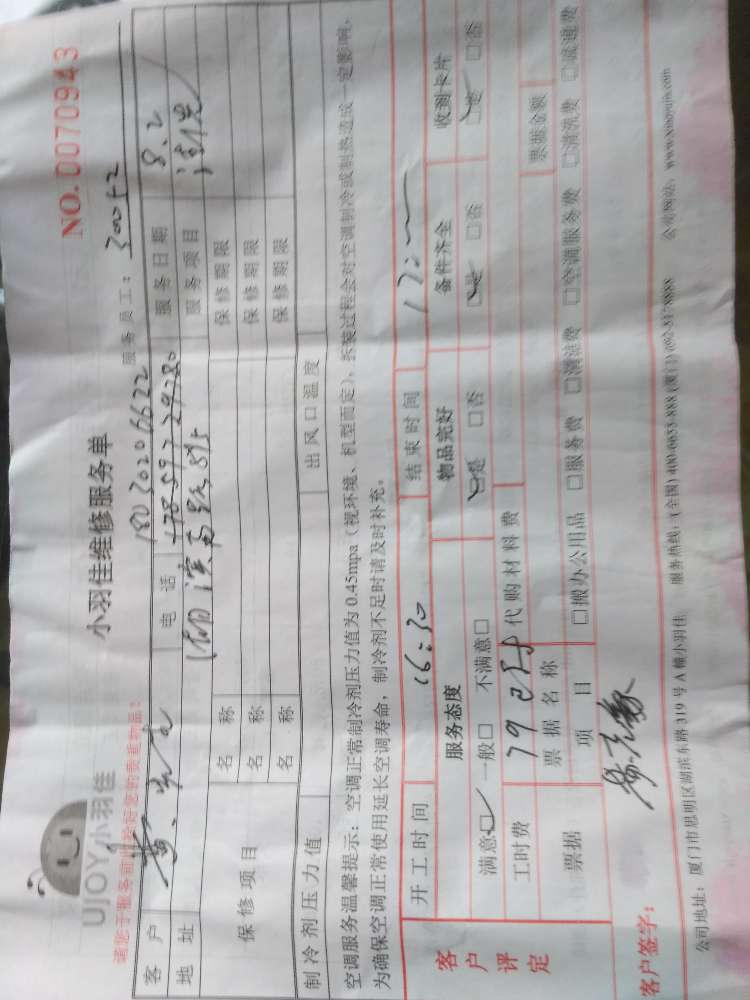 UJOY小羽佳
小羽佳维修服务单
NO.0070943
请您于服务前收拾好您的贵重物品!
服务员工:
客户
电话 18030206622
服务日期 8.2
地址
服务项目
保修项目 名称 保修期限
名称 保修期限
名称 保修期限
制冷剂压力值 出风口温度
空调服务温馨提示:空调正常制冷剂压力值为0.45mpa(视环境、机型而定),拆装过程会对空调制冷或制热造成一定影响,
为确保空调正常使用延长空调寿命,制冷剂不足时请及时补充。
开工时间 16:30 结束时间 17:
客户评定
服务态度 物品完好 备件齐全 收到卡片
满意□ 一般□ 不满意□ □是 □否 □是 □否 □是 □否
工时费 79 代购材料费
票据 票据名称 票据金额
项目 □搬办公用品 □服务费 □清洁费 □空调服务费 □清洗费 □疏通费
客户签字:
公司地址:厦门市思明区湖滨东路319号A幢小羽佳 服务热线:(全国)400-6655-888 (厦门)0592-8178888 公司网站:www.xmoyujia.com